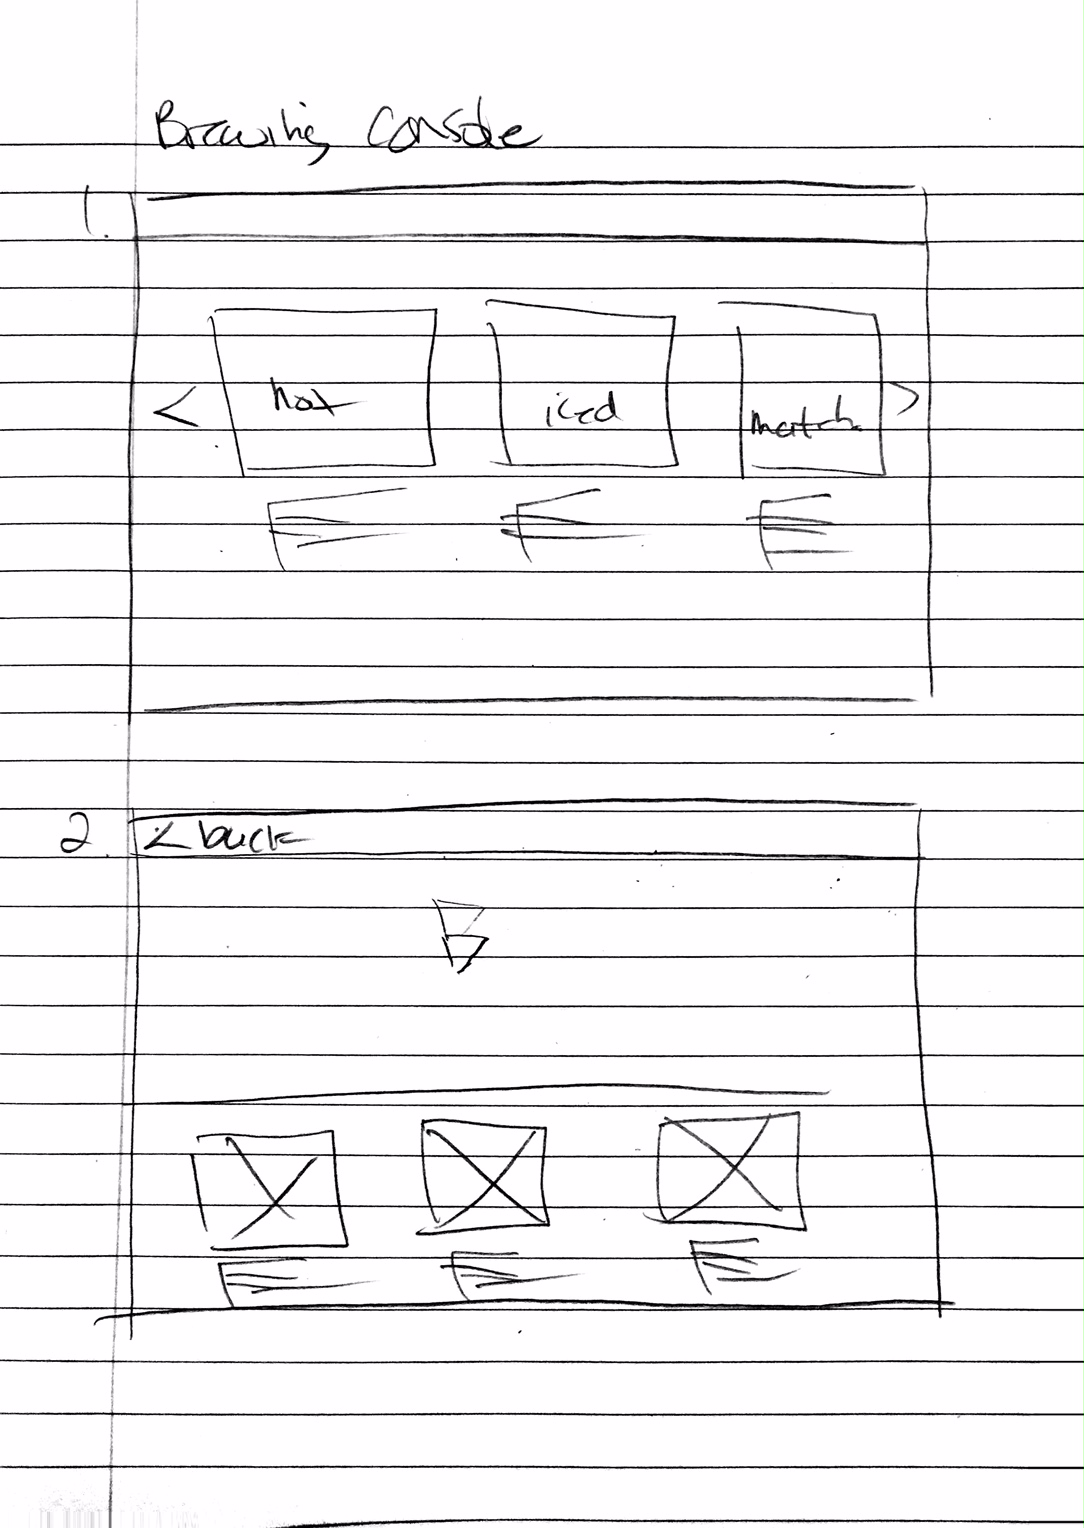 Brewing Console
1.
< hot iced match >
2. < back